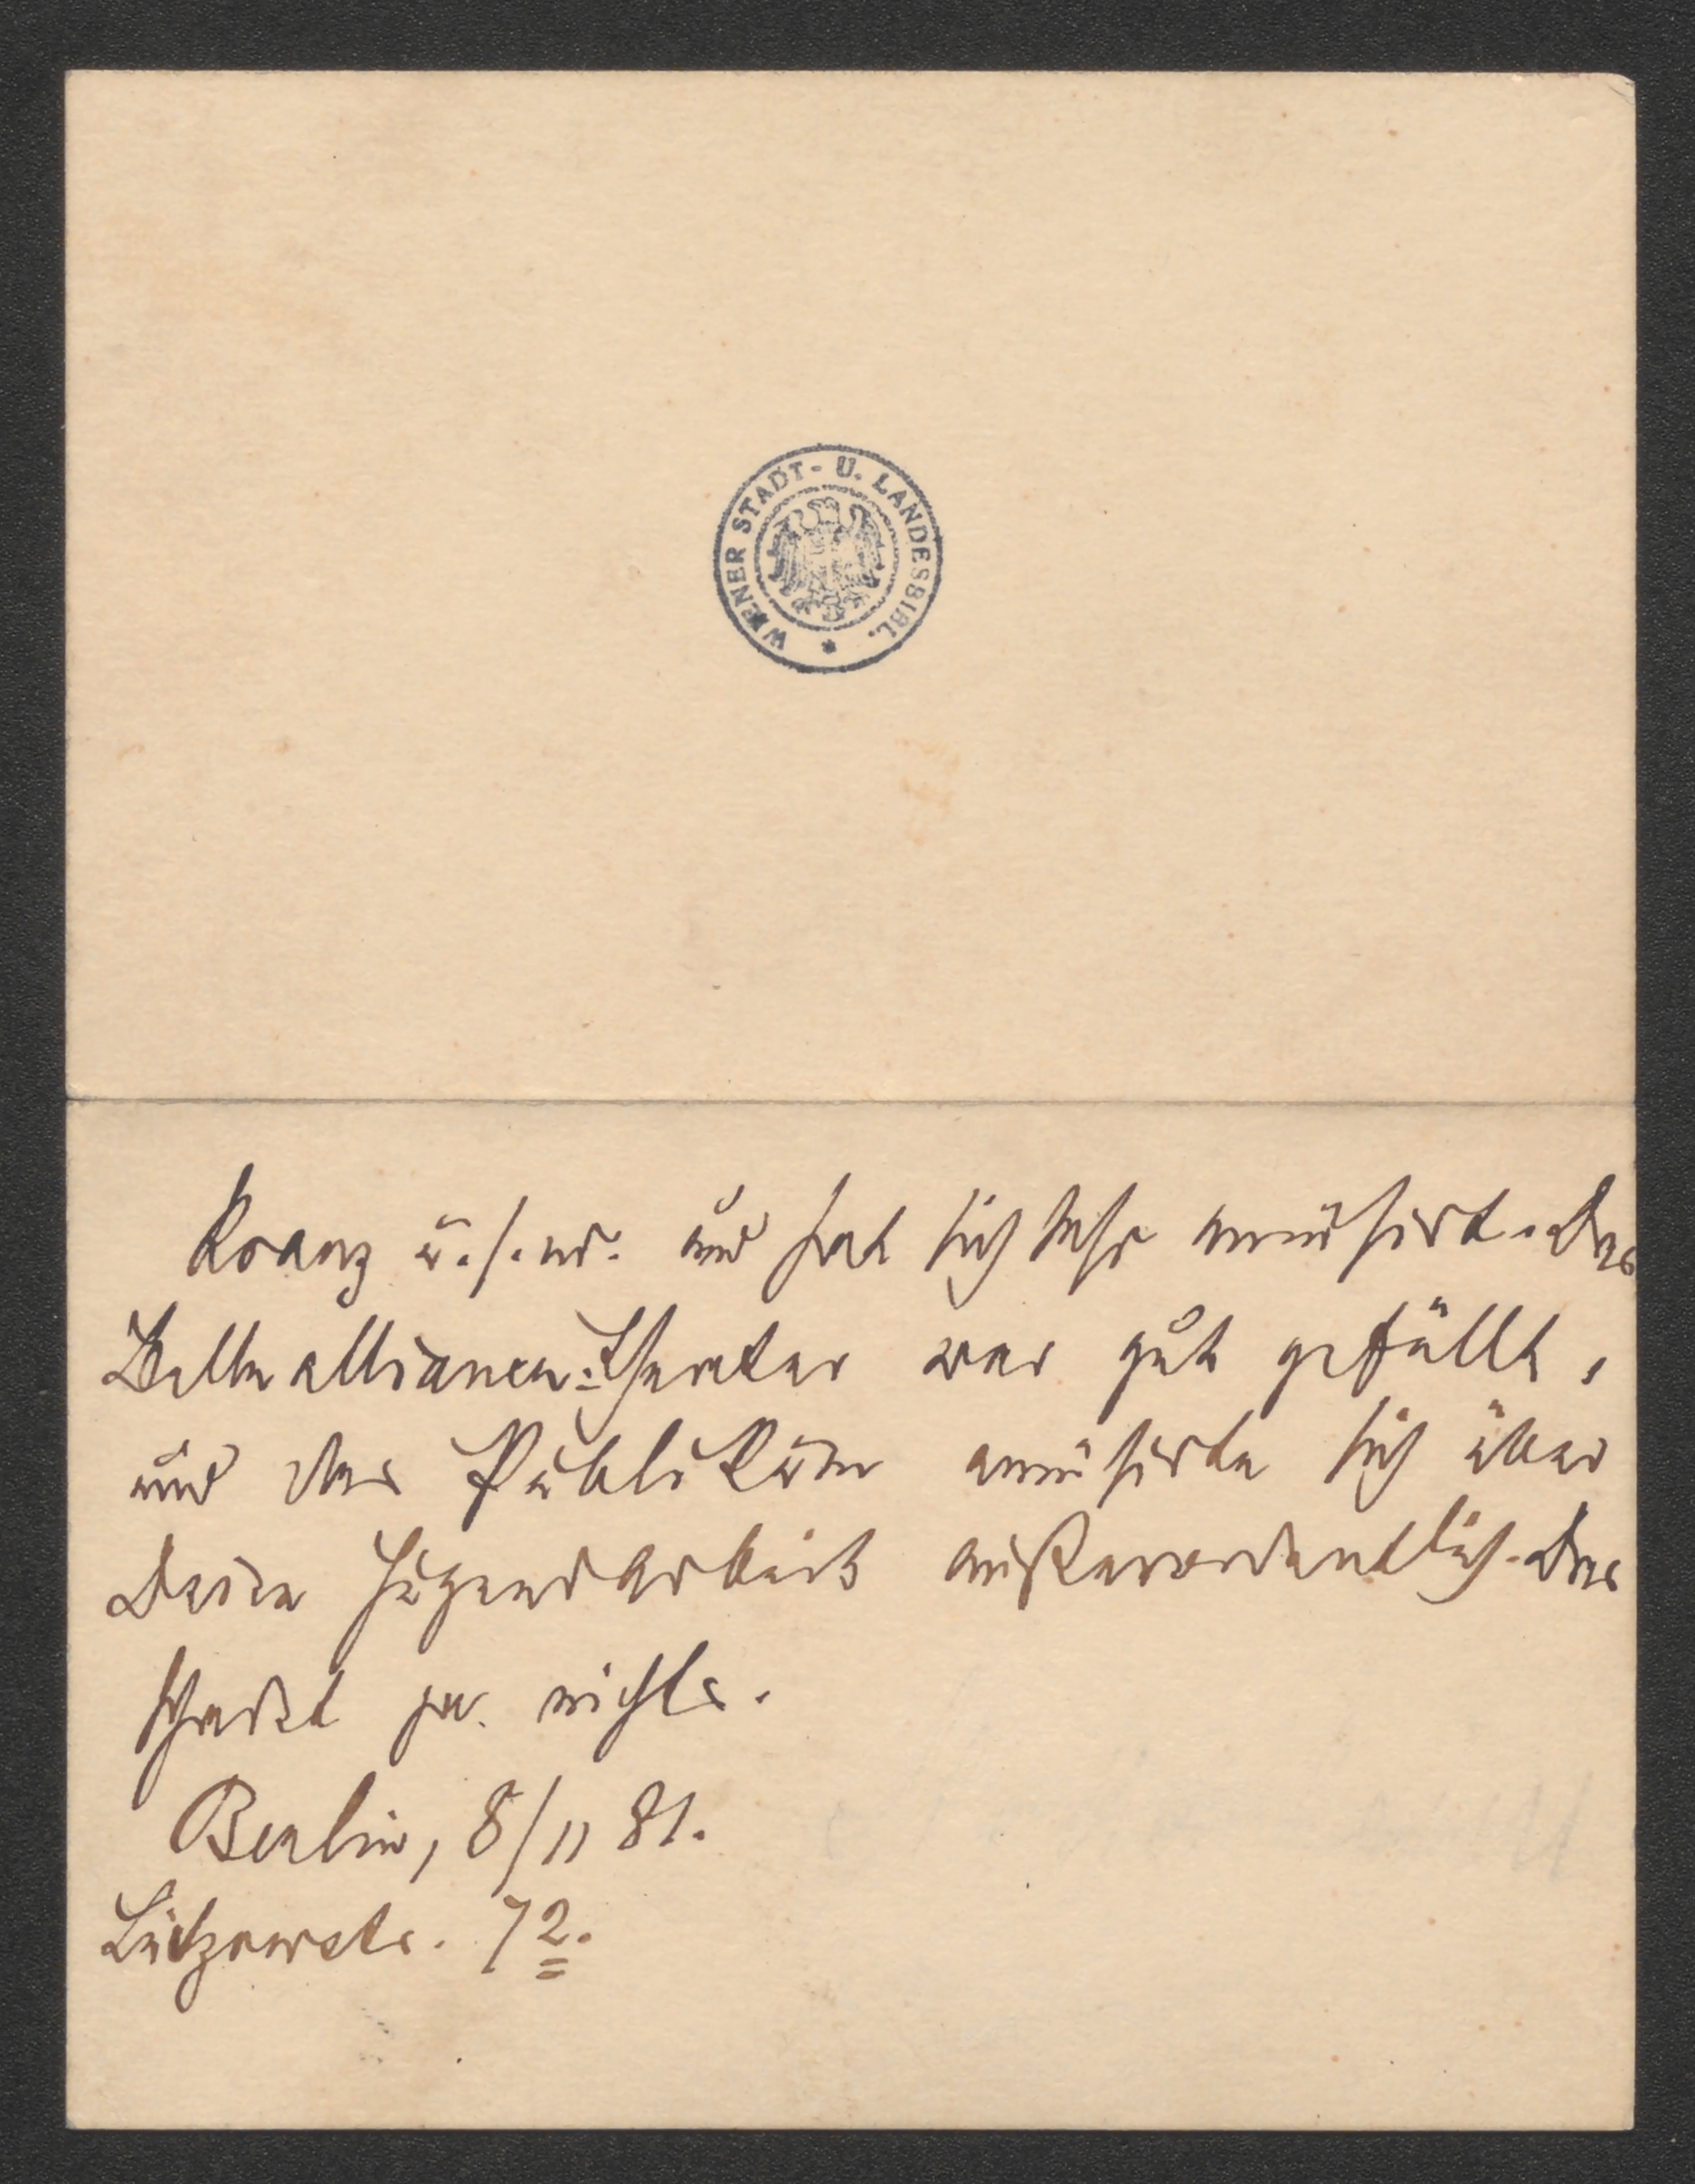 WIENER STADT- U. LANDESBIBL.
Kranz u. s. w. und hat sich sehr amüsirt. Das
Bellealliance-Theater war gut gefüllt,
und das Publikum amüsirte sich über
Deine Jugendarbeit außerordentlich. Das
schadet ja nichts.
Berlin, 8/11 81.
Lützowstr. 72.